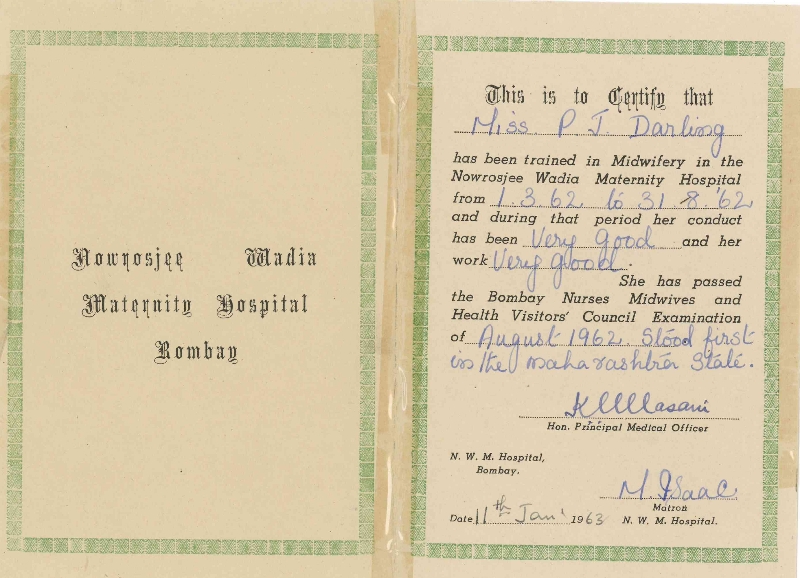 Nowrosjee Wadia
Maternity Hospital
Bombay
This is to Certify that
Miss. P J. Darling
has been trained in Midwifery in the
Nowrosjee Wadia Maternity Hospital
from 1.3.62 to 31.8.'62
and during that period her conduct
has been Very Good and her
work Very good.
She has passed
the Bombay Nurses Midwives and
Health Visitors' Council Examination
of August 1962. Stood first
in the Maharashtra State.
Hon. Principal Medical Officer
N. W. M. Hospital,
Bombay.
M. Isaac
Matron
Date 11th Jan' 1963 N. W. M. Hospital.